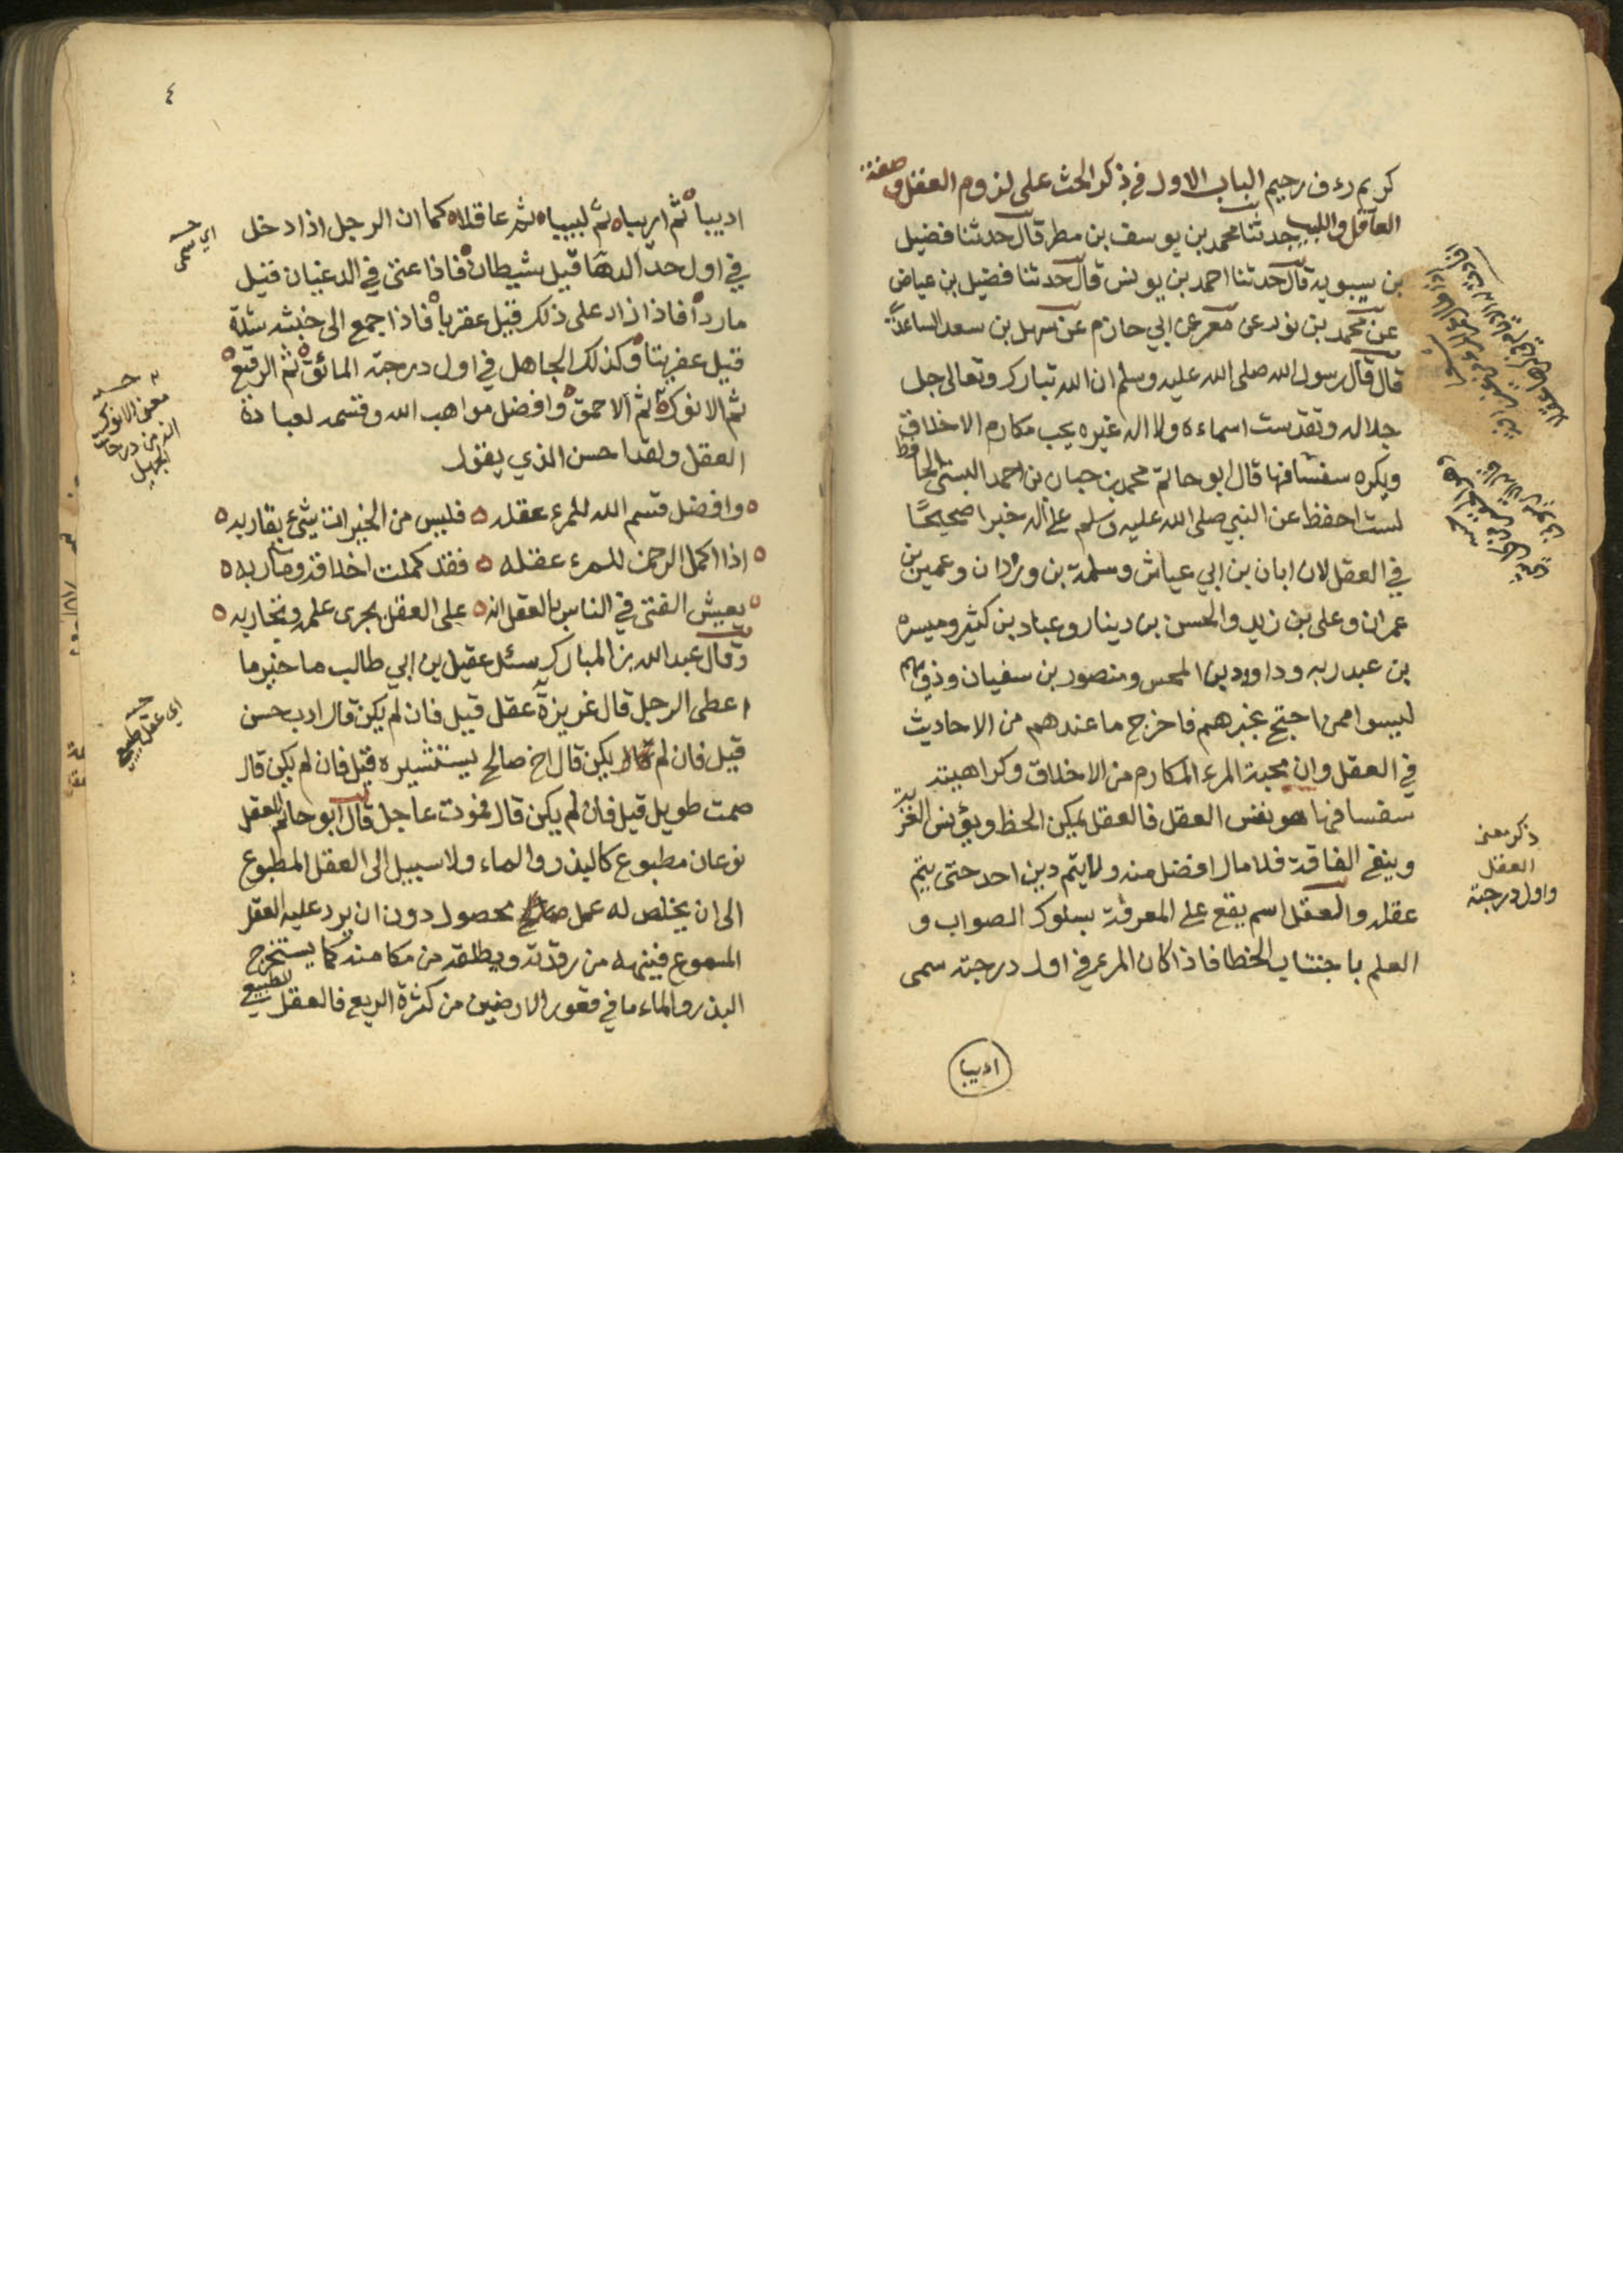 كريم رءوف رحيم الباب الاول في ذكر الحث على لزوم العقل وصفة
العاقل واللبيب حدثنا محمد بن يوسف بن مطر قال حدثنا فضيل
بن سيبويه قال حدثنا احمد بن يونس قال حدثنا فضيل بن عياض
عن محمد بن ثور عن معمر عن ابي حازم عن سهل بن سعد الساعدي
قال قال رسول الله صلى الله عليه وسلم ان الله تبارك وتعالى جل
جلاله وتقدست اسماءه ولا اله غيره يحب مكارم الاخلاق
ويكره سفسافها قال ابو حاتم محمد بن حبان بن احمد البستي الحافظ
لست احفظ عن النبي صلى الله عليه وسلم على اله خبرا صحيحًا
في العقل لان ابان بن ابي عياش وسلمة بن وردان وعمير بن
عمران وعلى بن زيد والحسن بن دينار وعباد بن كثير وميسره
بن عبد ربه وداود بن المحبر ومنصور بن سفيان وذويهم
ليسوا ممن احتج بخبرهم فاخرج ما عندهم من الاحاديث
في العقل وان محبة المرء المكارم من الاخلاق وكراهيته
سفسافها هو نفس العقل فالعقل يمكن الحظ ويؤنس الغربة
وينفي الفاقة فلا مال افضل منه ولا يتم دين احد حتى يتم
عقله والعقل اسم يقع على المعرفة بسلوك الصواب و
العلم باجتناب الخطا فاذا كان المرء في اول درجته سمى
ادیبا
ذكر معنى
العقل
واول درجته
٤
اديبا ثم اريبا ثم لبيبا ثم عاقلا كما ان الرجل اذا دخل
في اول حد الدها قيل شيطان فاذا عتى في الدغيان قيل
ماردا فاذا زاد على ذلك قيل عقربا فاذا جمع الى خبثه شدة
قيل عفريتا وكذلك الجاهل في اول درجته المائق ثم الرقيع
ثم الانوك ثم الاحمق وافضل مواهب الله وقسمه لعباده
العقل ولقد احسن الذي يقول
وافضل قسم الله للمرء عقله ٥ فليس من الخيرات شيء يقاربه ٥
اذا اكمل الرحمن للمرء عقله ٥ فقد كملت اخلاقه ومآربه ٥
يعيش الفتى في الناس بالعقل انه ٥ على العقل يجرى علمه وتجاربه ٥
وقال عبد الله بن المبارك سئل عقيل بن ابي طالب ما خير ما
اعطى الرجل قال غريزة عقل قيل فان لم يكن قال ادب حسن
قيل فان لم يكن قال اخ صالح يستشيره قيل فان لم يكن قال
صمت طويل قيل فان لم يكن قال فموت عاجل قال ابو حاتم العقل
نوعان مطبوع كالبذر والماء ولا سبيل الى العقل المطبوع
الى ان يخلص له عمل محصول دون ان يرد عليه العقل
المسموع فينبهه من رقدته ويطلقه من مكامنه كما يستخرج
البذر والماء ما في قعور الارضين من كثرة الريع فالعقل الطبيعي
اي سمى
معنى الانوك
الذ من درجات
الجهل
اي عقل طبيع